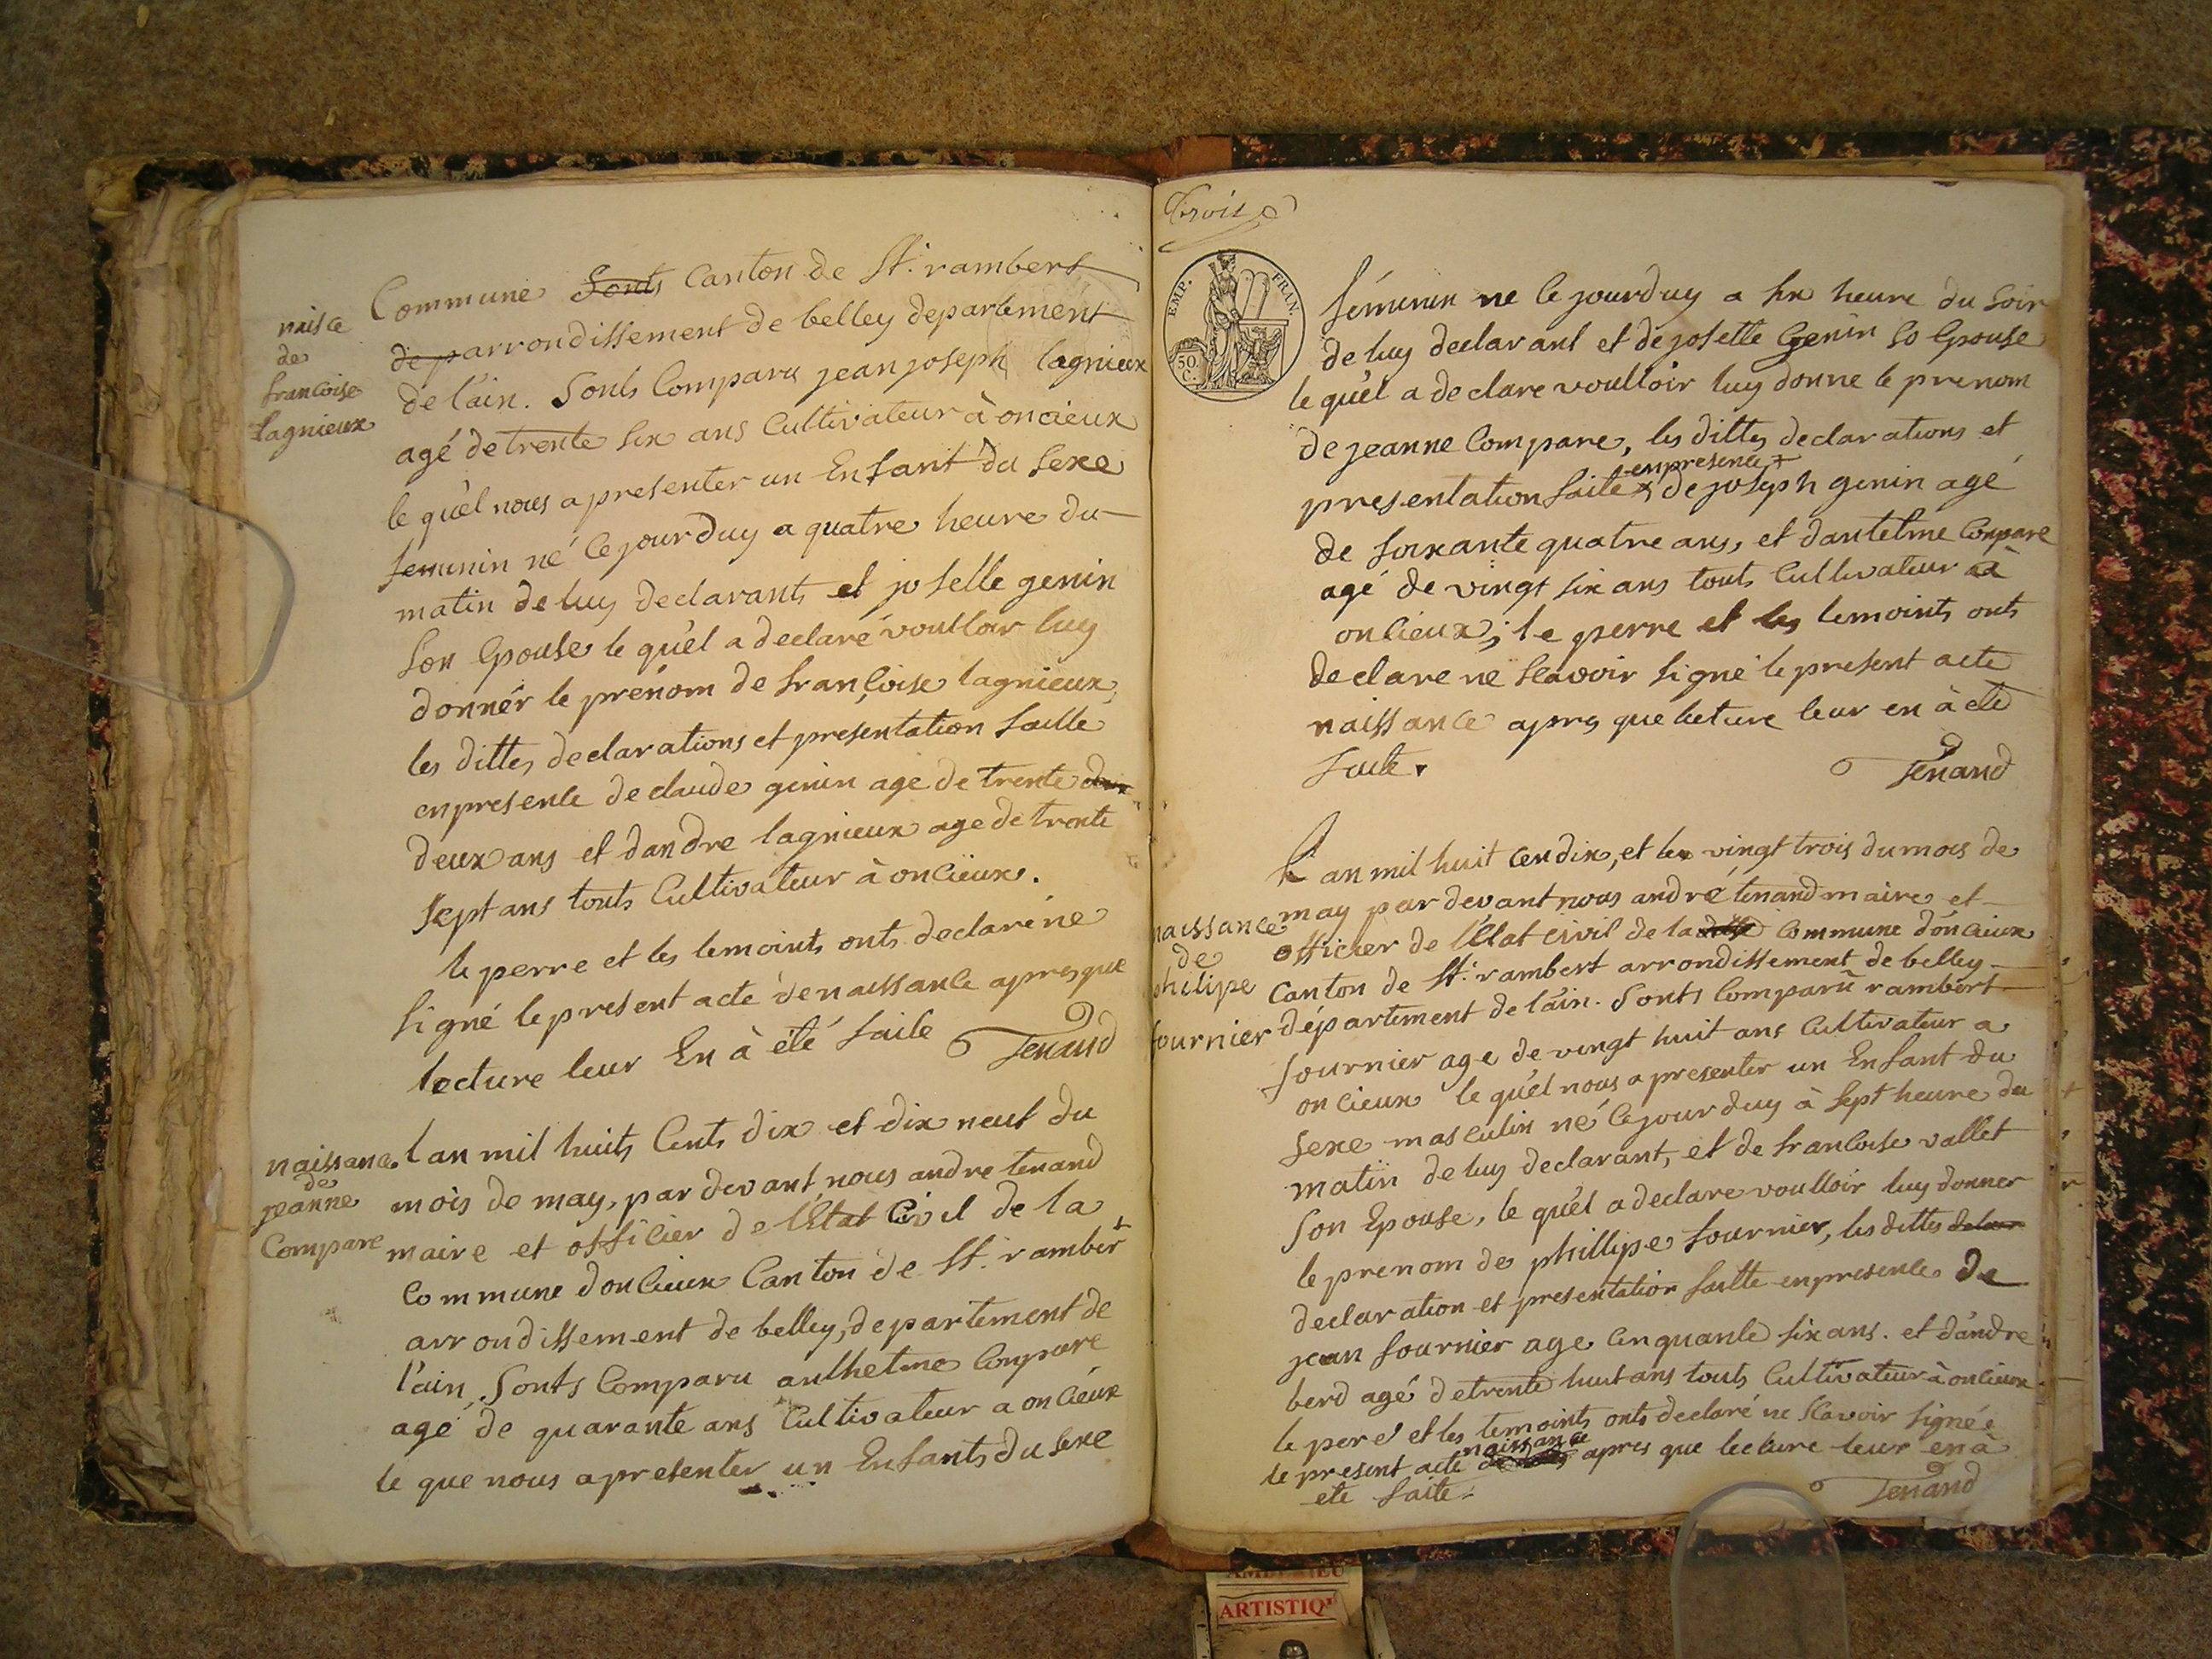 naisce
de
francoise
Lagnieux
Commune Sonts Canton de St. rambert
de parrondissement de belley departement
de l'ain. Sonts Comparu jean joseph lagnieux
agé de trente six ans Cultivateur à oncieux
le quèl nous a presenter un Enfant du Sexe
femunin né Cejourduy a quatre heure du
matin de luy declarants et joselle genin
Son Epouse le quèl a declaré voulloir luy
donnér le prénom de françoise lagnieux
les dittes declarations et presentation faitte
enpresence de claude genin age de trente deux
deux ans et dandre lagnieux age de trente
Sept ans touts Cultivateur à oncieux.
le perre et les temoints onts declaré ne
Signé le present acte de naissance apres que
lecture leur En à été faite Tenand
naissance
de
jeanne
Compare
lan mil huits Cents dix et dix neuf du
mois de may, par devant nous andre tenand
maire et officier de l'Etat Civil de la
Commune doncieux Canton de St. rambert
arrondissement de belley, departement de
l'ain. Sonts Comparu anthelme Compare
agé de quarante ans Cultivateur a oncieux
le que nous apresenter un Enfants du Sexe
Trois
EMP. FRAN.
50 C.
féminin ne le jourduy a six heure du Soir
de luy declarant et de josette Genin So Epouse
le quèl a declare voulloir luy donne le prenom
de jeanne Compare, les dittes declarations et
enpresence +
presentation faite de joseph genin agé
de soixante quatre ans, et dantelme Compare
agé de vingt six ans touts Cultivateur à
oncieux; le perre et les temoints onts
declare ne Scavoir Signé le present acte
naissance apres que lecture leur en à eté
faite. Tenand
naissance
de
philipe
fournier
Lan mil huit cendix, et le vingt trois du mois de
may par devant nous andré tenand maire et
officier de l'Etat civil de la ditte Commune d'oncieux
Canton de St. rambert arrondissement de belley
département de l'ain. Sonts Comparu rambert
fournier age de vingt huit ans Cultivateur a
oncieux le quèl nous a presenter un Enfant du
Sexe masculin né Cejourduy à Sept heure du
matin de luy declarant, et de francoise vallet
Son Epouse, le quèl a declare voulloir luy donner
le prenom de phillipe fournier, les dittes
declaration et presentation faitte enpresence de
jean fournier age Cinquante six ans. et dandre
berd agé de trente huit ans touts Cultivateur à oncieux
le peré et les temoints onts declaré ne Scavoir Signée
naissance
le present acte apres que lecture leur en à
ete faite. Tenand
ARTISTIQ